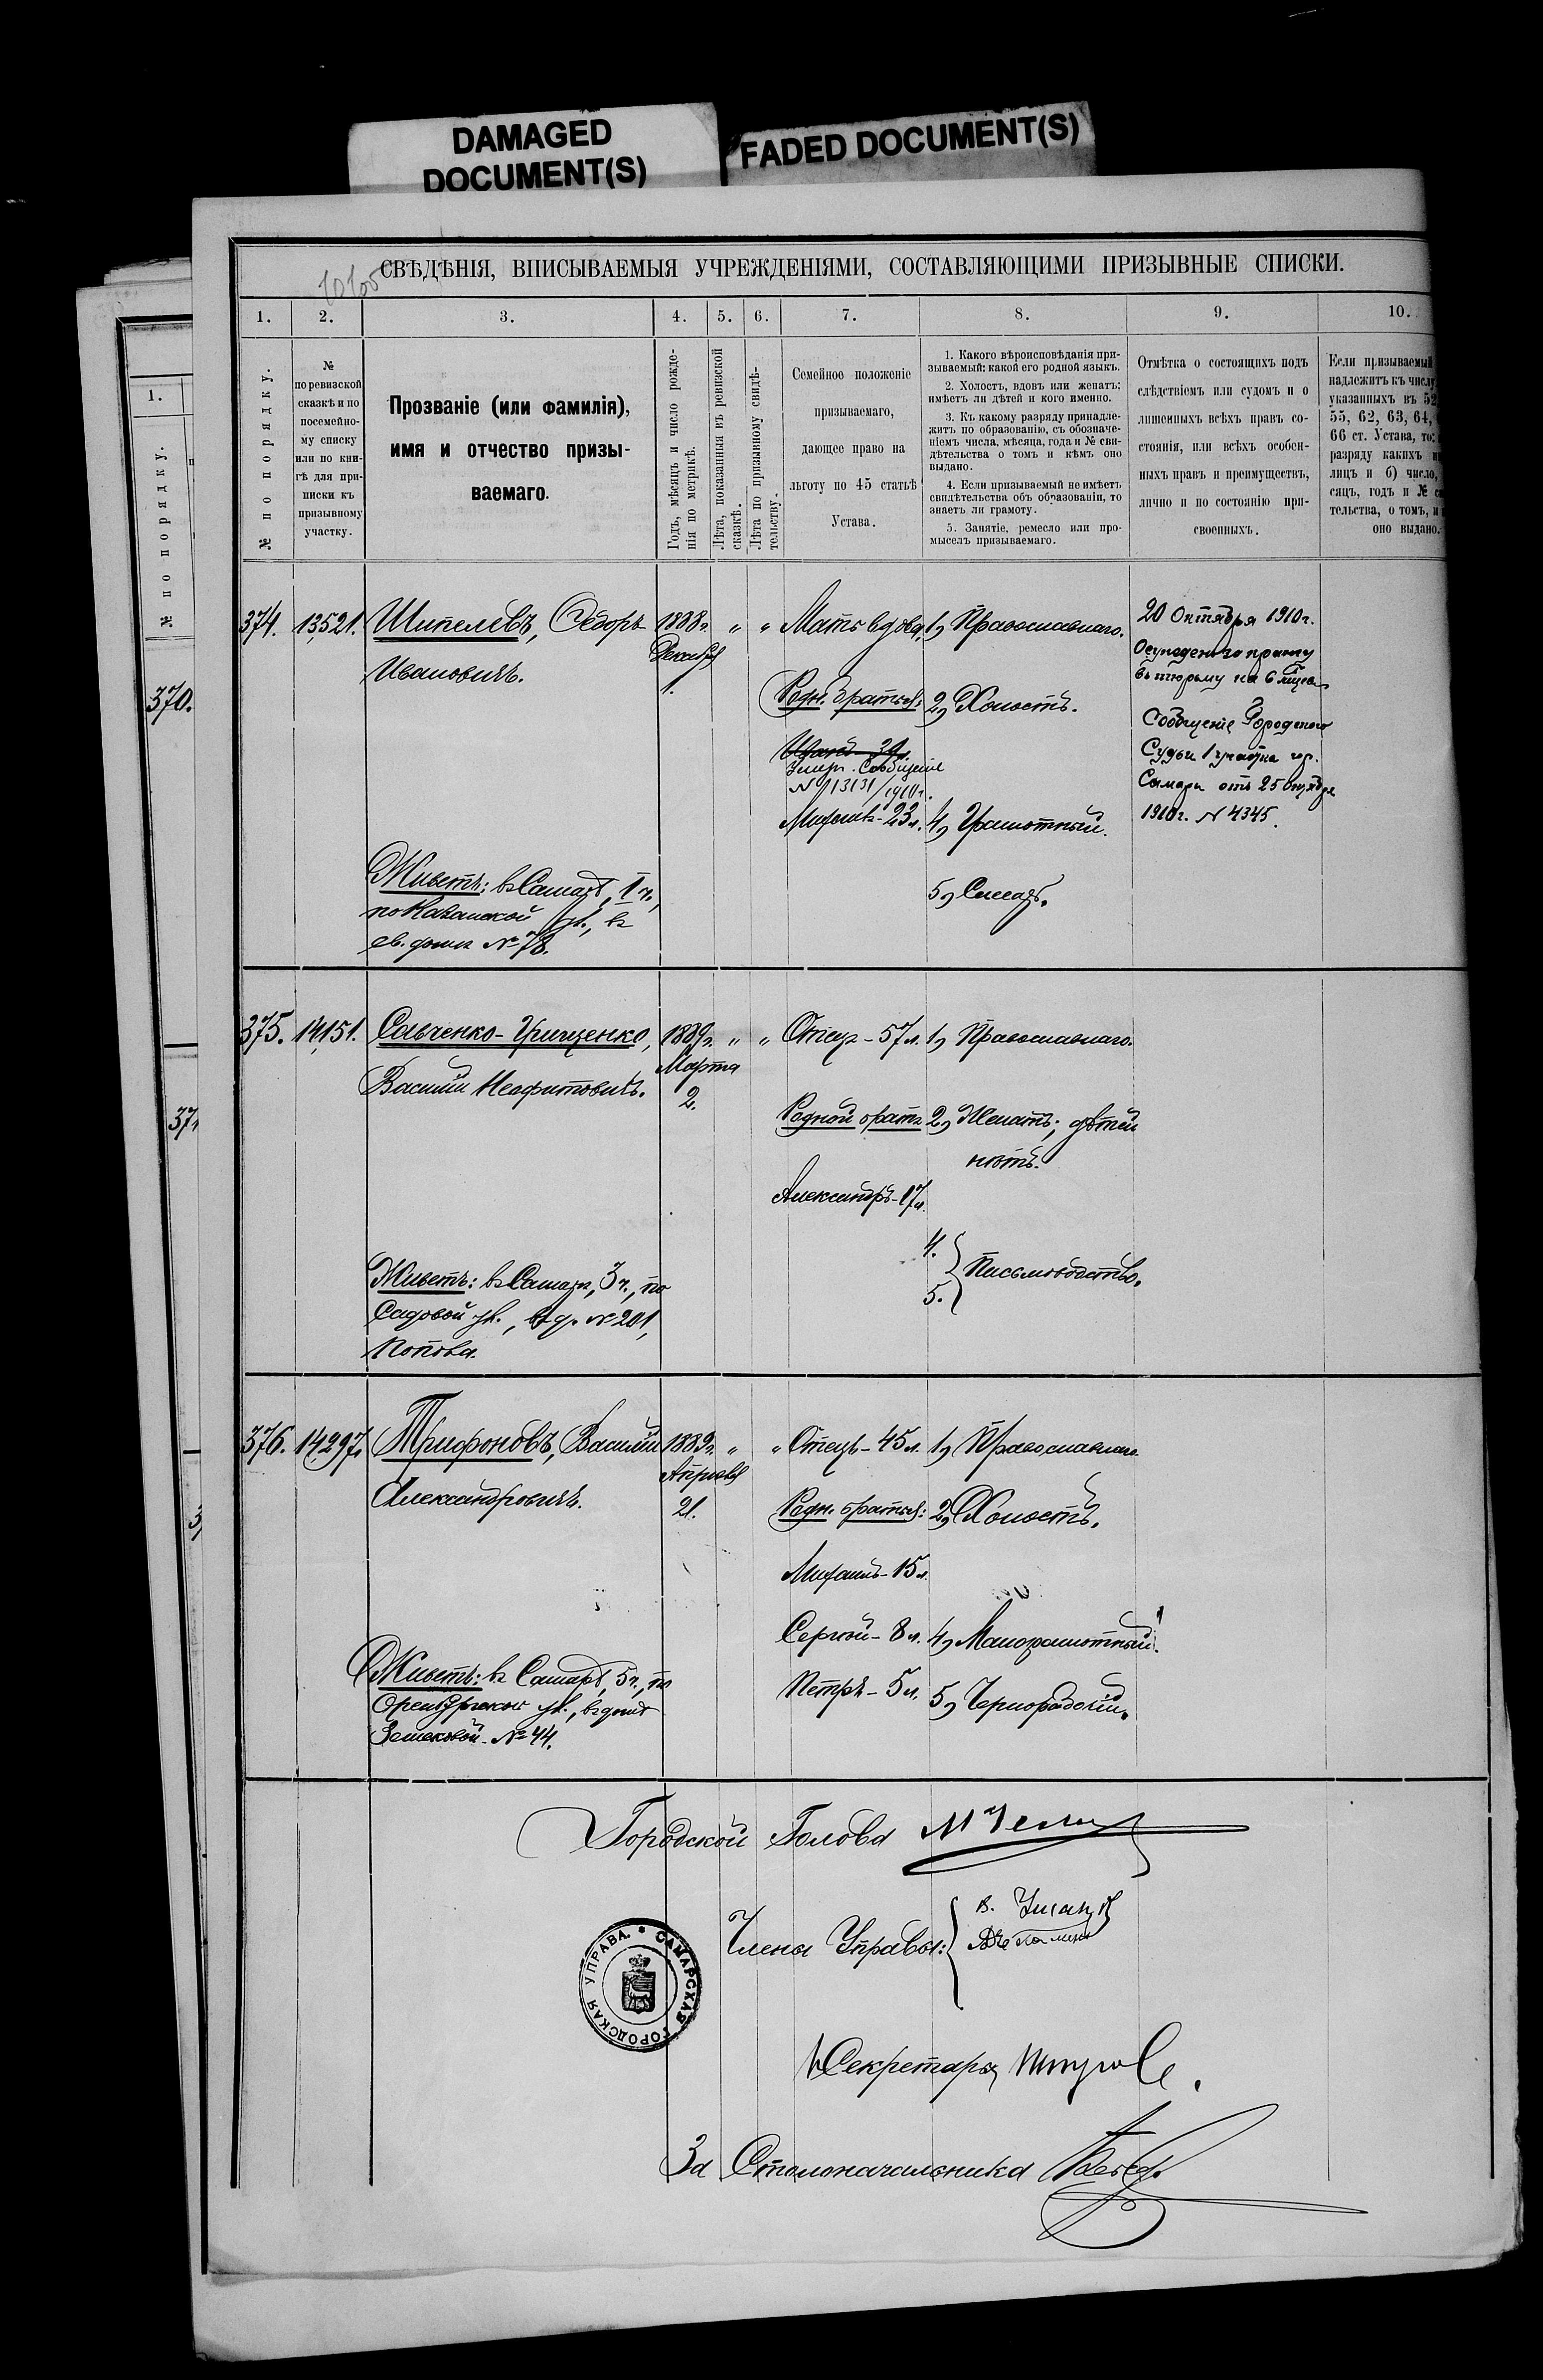 DAMAGED
DOCUMENT(S)
FADED DOCUMENT(S)
СВѢДѢНІЯ, ВПИСЫВАЕМЫЯ УЧРЕЖДЕНІЯМИ, СОСТАВЛЯЮЩИМИ ПРИЗЫВНЫЕ СПИСКИ.
1. 2. 3. 4. 5. 6. 7. 8. 9. 10.
1.
№ по порядку.
370.
№ по порядку.
№
по ревизской
сказкѣ и по
посемейно-
му списку
или по кни-
гѣ для при-
писки къ
призывному
участку.
Прозваніе (или фамилія),
имя и отчество призы-
ваемаго.
Годъ, мѣсяцъ и число рожде-
нія по метрикѣ.
Лѣта, показанныя въ ревизской
сказкѣ.
Лѣта по призывному свидѣ-
тельству.
Семейное положеніе
призываемаго,
дающее право на
льготу по 45 статьѣ
Устава.
1. Какого вѣроисповѣданія при-
зываемый; какой его родной языкъ.
2. Холостъ, вдовъ или женатъ;
имѣетъ ли дѣтей и кого именно.
3. Къ какому разряду принадле-
житъ по образованію, съ обозначе-
ніемъ числа, мѣсяца, года и № сви-
дѣтельства о томъ и кѣмъ оно
выдано.
4. Если призываемый не имѣетъ
свидѣтельства объ образованіи, то
знаетъ ли грамоту.
5. Занятіе, ремесло или про-
мыселъ призываемаго.
Отмѣтка о состоящихъ подъ
слѣдствіемъ или судомъ и о
лишенныхъ всѣхъ правъ со-
стоянія, или всѣхъ особен-
ныхъ правъ и преимуществъ,
лично и по состоянію при-
своенныхъ.
Если призываемый
надлежитъ къ числу
указанныхъ въ 52,
55, 62, 63, 64,
66 ст. Устава, то:
разряду какихъ
лицъ и б) число,
сяцъ, годъ и №
тельства, о томъ, и
оно выдано.
374. 13,521. Шипелевъ, Ѳедоръ
Ивановичъ.
1888 г.
Декабря
1.
" " Мать вдова.
Родн. братья:
Иванъ - 39
Умеръ. Сообщеніе
№ 13131/1910 г.
Михаилъ - 23 л.
1, Православнаго.
2, Холостъ.
4, Грамотный.
5, Слесарь.
20 Октября 1910 г.
Осужденъ за кражу
въ тюрьму на 6 мѣсяц.
Сообщеніе Городского
Судьи 1 участка гор.
Самары отъ 25 Октября
1910 г. № 4345.
Живетъ: въ Самарѣ, I ч.,
по Казанской ул., въ
св. домѣ № 78.
375. 14,151. Савченко-Грищенко,
Василій Неофитовичъ.
1889 г.
Марта
2.
" " Отецъ - 57 л.
Родной братъ
Александръ - 17 л.
1, Православнаго.
2, Женатъ; дѣтей
нѣтъ.
4.
5. } Письмоводство.
Живетъ: въ Самарѣ, 3 ч., по
Садовой ул., въ д. № 201,
Попова.
376. 14,297. Трифоновъ, Василій
Александровичъ.
1889 г.
Апрѣля
21.
" " Отецъ - 45 л.
Родн. братья:
Михаилъ - 15 л.
Сергѣй - 8 л.
Петръ - 5 л.
1, Православнаго
2, Холостъ.
4, Малограмотный.
5, Чернорабочій.
Живетъ: въ Самарѣ, 5 ч., по
Оренбургской ул., въ домѣ
№ 44.
Городской Голова
Члены Управы:
САМАРСКАЯ ГОРОДСКАЯ УПРАВА.
Секретарь
За Столоначальника